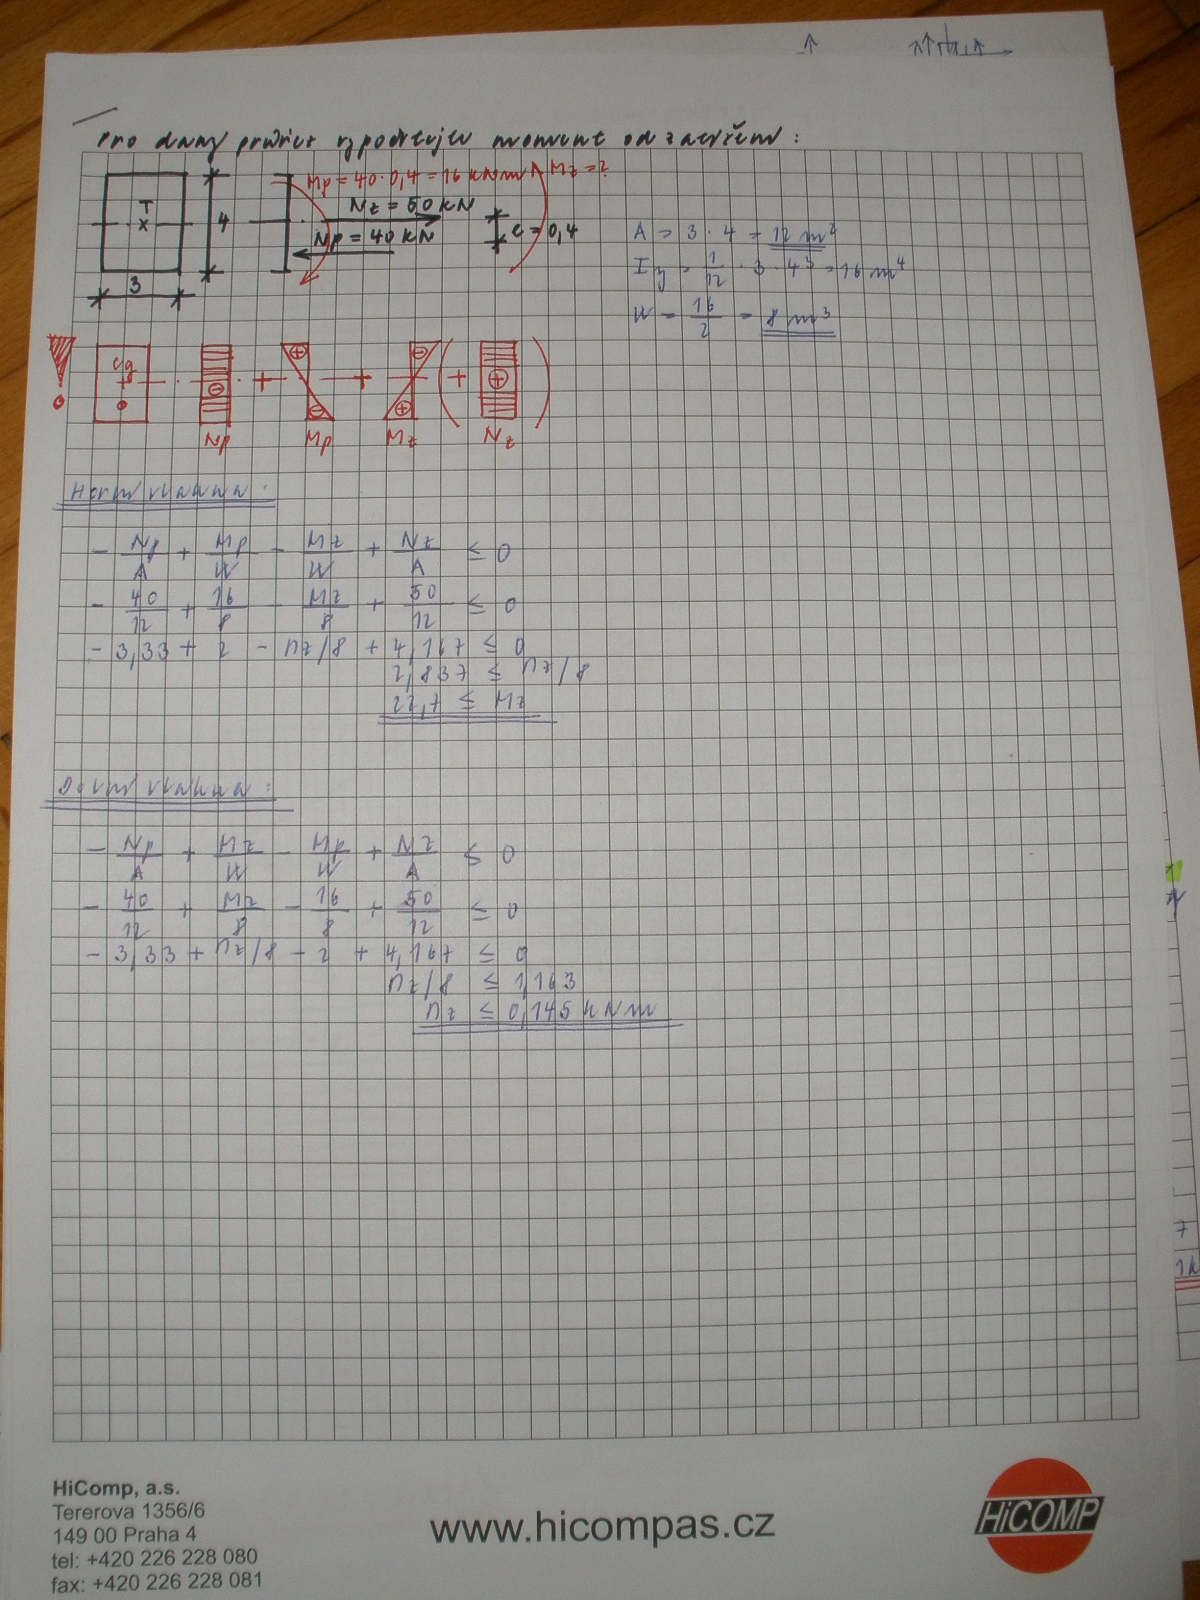 Pro daný průřez vypočtejte moment od zatížení:
Mp = 40 · 0,4 = 16 kNm Mz = ?
Nz = 50 kN
Np = 40 kN
e = 0,4
T
x
4
3
A = 3 · 4 = 12 m²
Iy = 1/12 · 3 · 4³ = 16 m⁴
W = 16/2 = 8 m³
Cg
⊖ + ⊕ ⊖ + ⊖ ⊕ ( + ⊕ )
Np Mp Mz Nz
Horní vlákna:
- Np/A + Mp/W - Mz/W + Nz/A ≤ 0
- 40/12 + 16/8 - Mz/8 + 50/12 ≤ 0
- 3,33 + 2 - Mz/8 + 4,167 ≤ 0
2,837 ≤ Mz/8
22,7 ≤ Mz
Dolní vlákna:
- Np/A + Mz/W - Mp/W + Nz/A ≤ 0
- 40/12 + Mz/8 - 16/8 + 50/12 ≤ 0
- 3,33 + Mz/8 - 2 + 4,167 ≤ 0
Mz/8 ≤ 1,163
Mz ≤ 0,145 kNm
7
HiComp, a.s.
Tererova 1356/6
149 00 Praha 4
tel: +420 226 228 080
fax: +420 226 228 081
www.hicompas.cz
HiCOMP